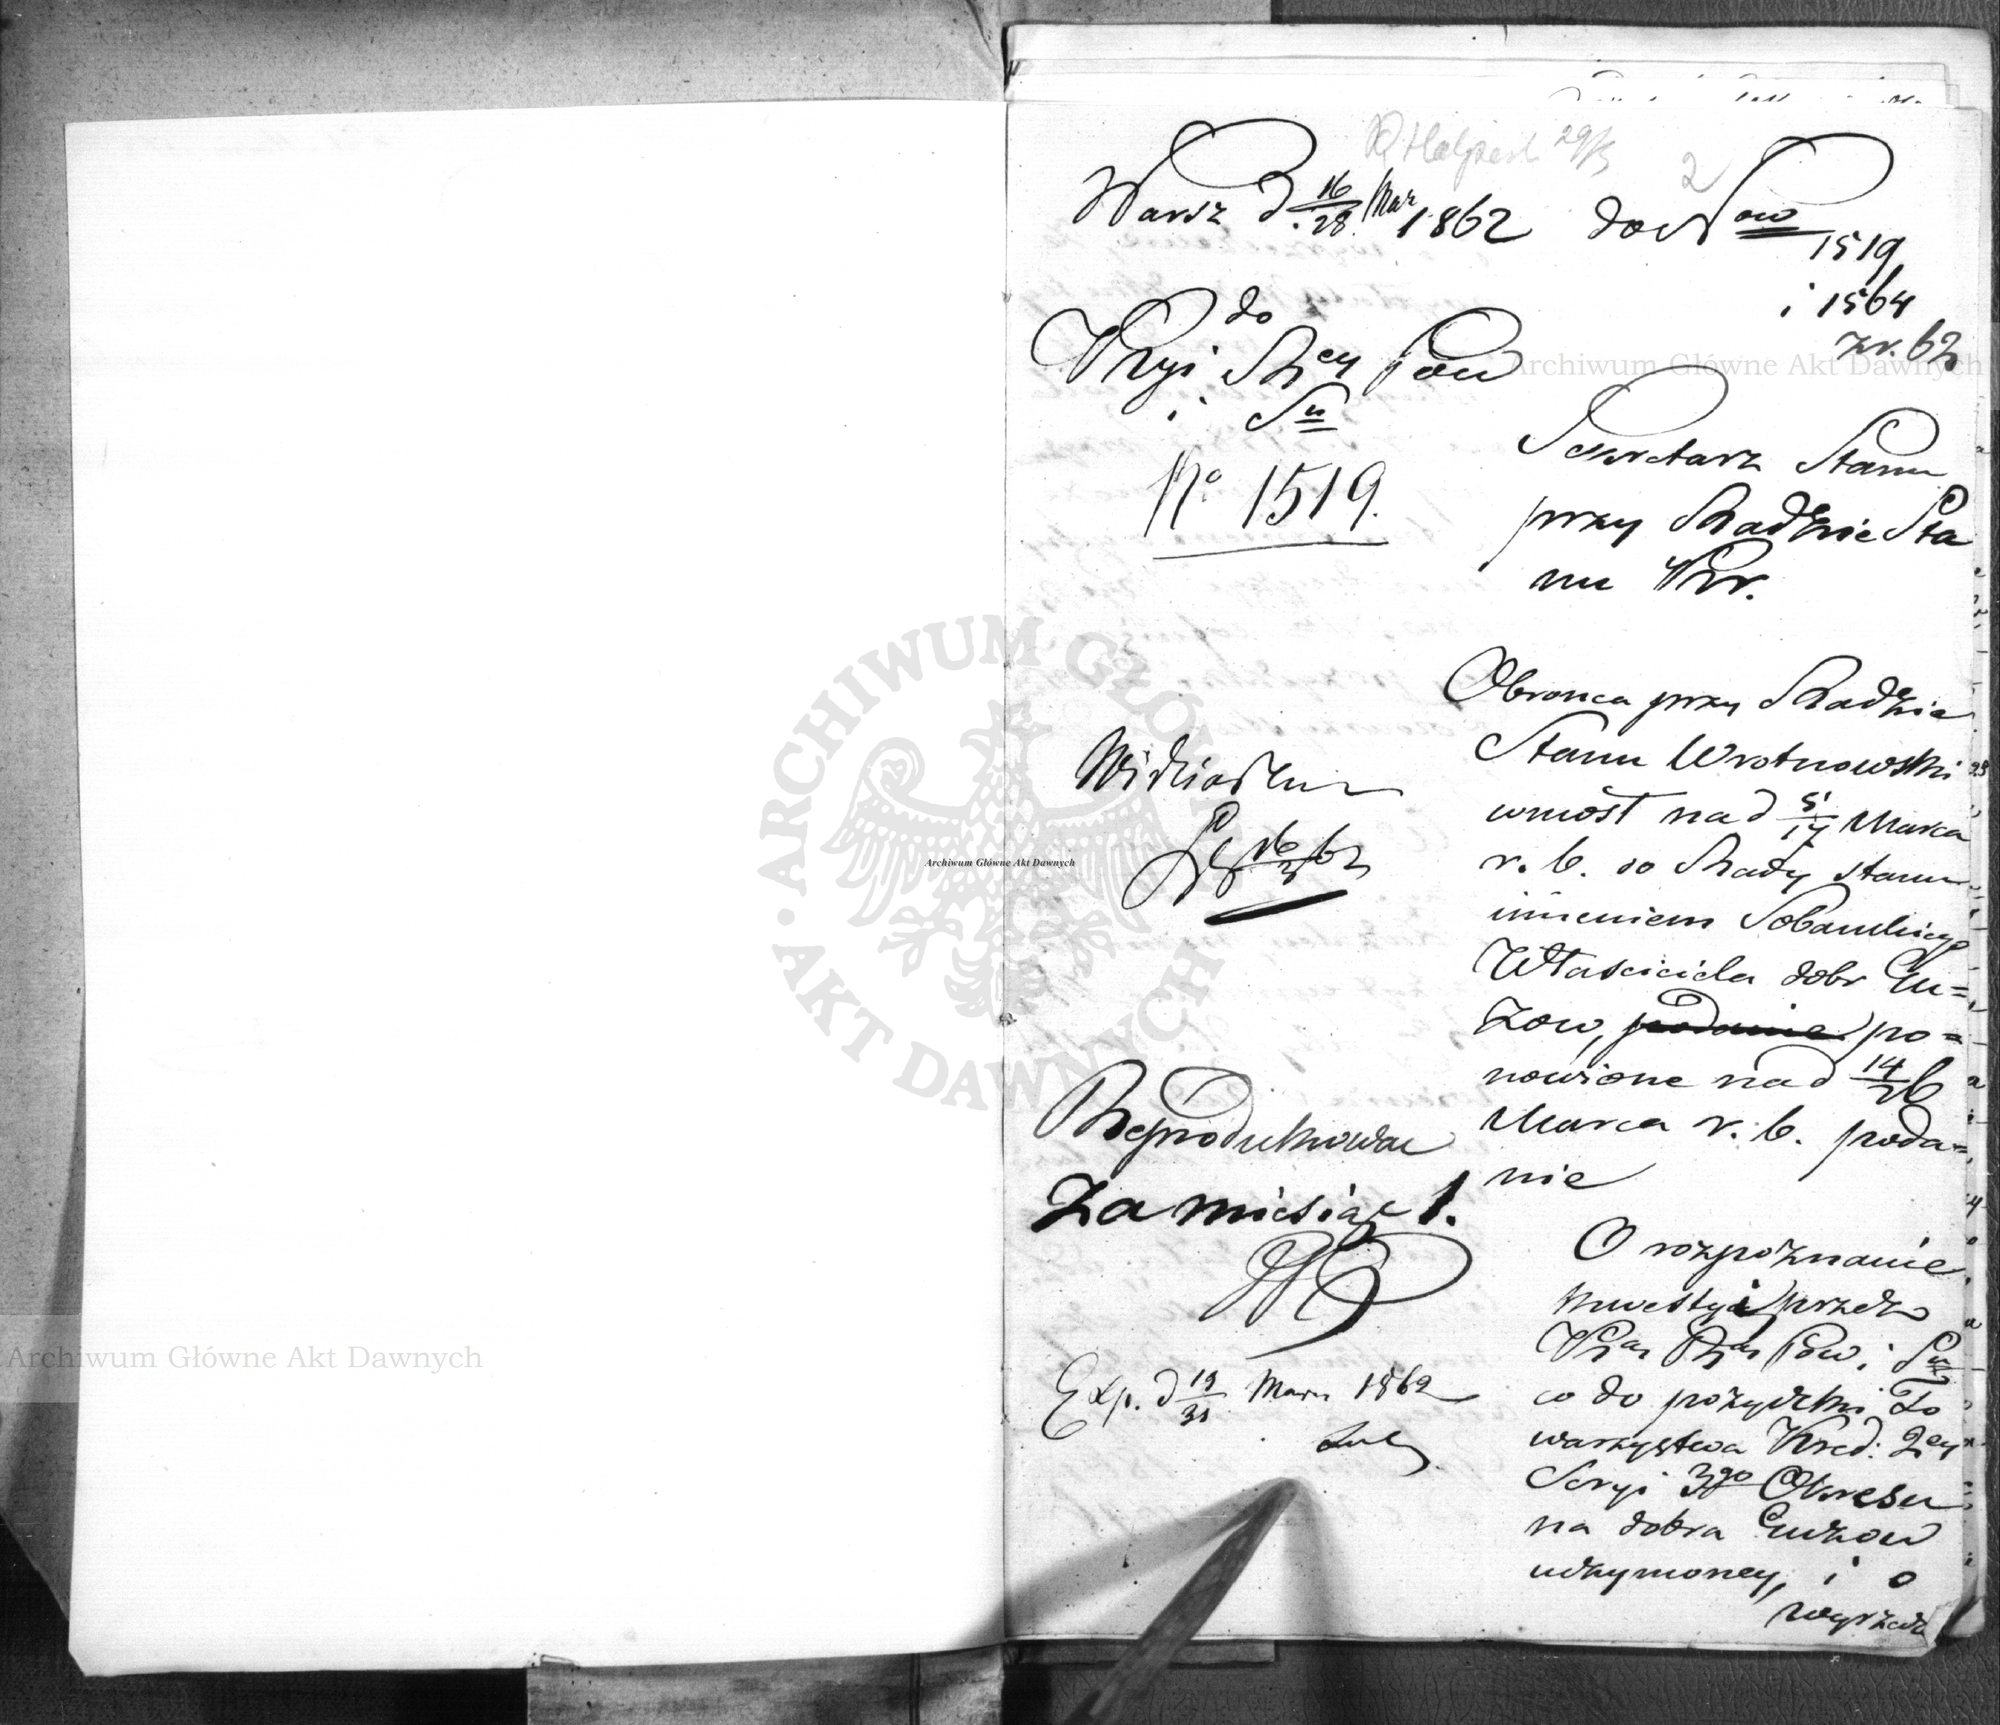 2
Warsz d. 16/28 Mar 1862 do Nrow
1519
i 1564
zr. 62
do
Kssyi Rzey Przy
i Su
No 1519.
Sekretarz Stanu
przy Radzie Sta
nu Kr.
Obronca przy Radzie
Stanu Wrotnowski
wniósł nad 5/17 Marca
r. b. do Rady Stanu
imieniem Sobańskiego
Właściciela dobr Gu=
zow, podanie po=
nowione nad 14/26
Marca r. b. poda=
nie
O rozpoznanie
kwestyi przez
i
co do pożyczki To
warzystwa Kred: Zey
Seryi 3go Okresu
na dobra Guzow
udzymoney, i o
Widziałem
16/3 62
Reprodukować
Za miesiąc 1.
Exp. d 19/31 Marca 1862
Archiwum Główne Akt Dawnych
ARCHIWUM GŁÓWNE AKT DAWNYCH
Archiwum Główne Akt Dawnych
Archiwum Główne Akt Dawnych